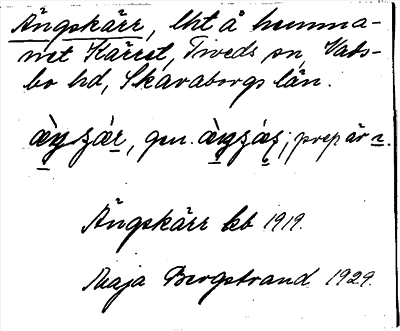 Ängskärr, lht å hemma-
net Kärret, Tiveds sn, Vads-
bo hd, Skaraborgs län.
gen. ; prep är
Ängskärr kb 1919.
Maja Bergstrand 1929.